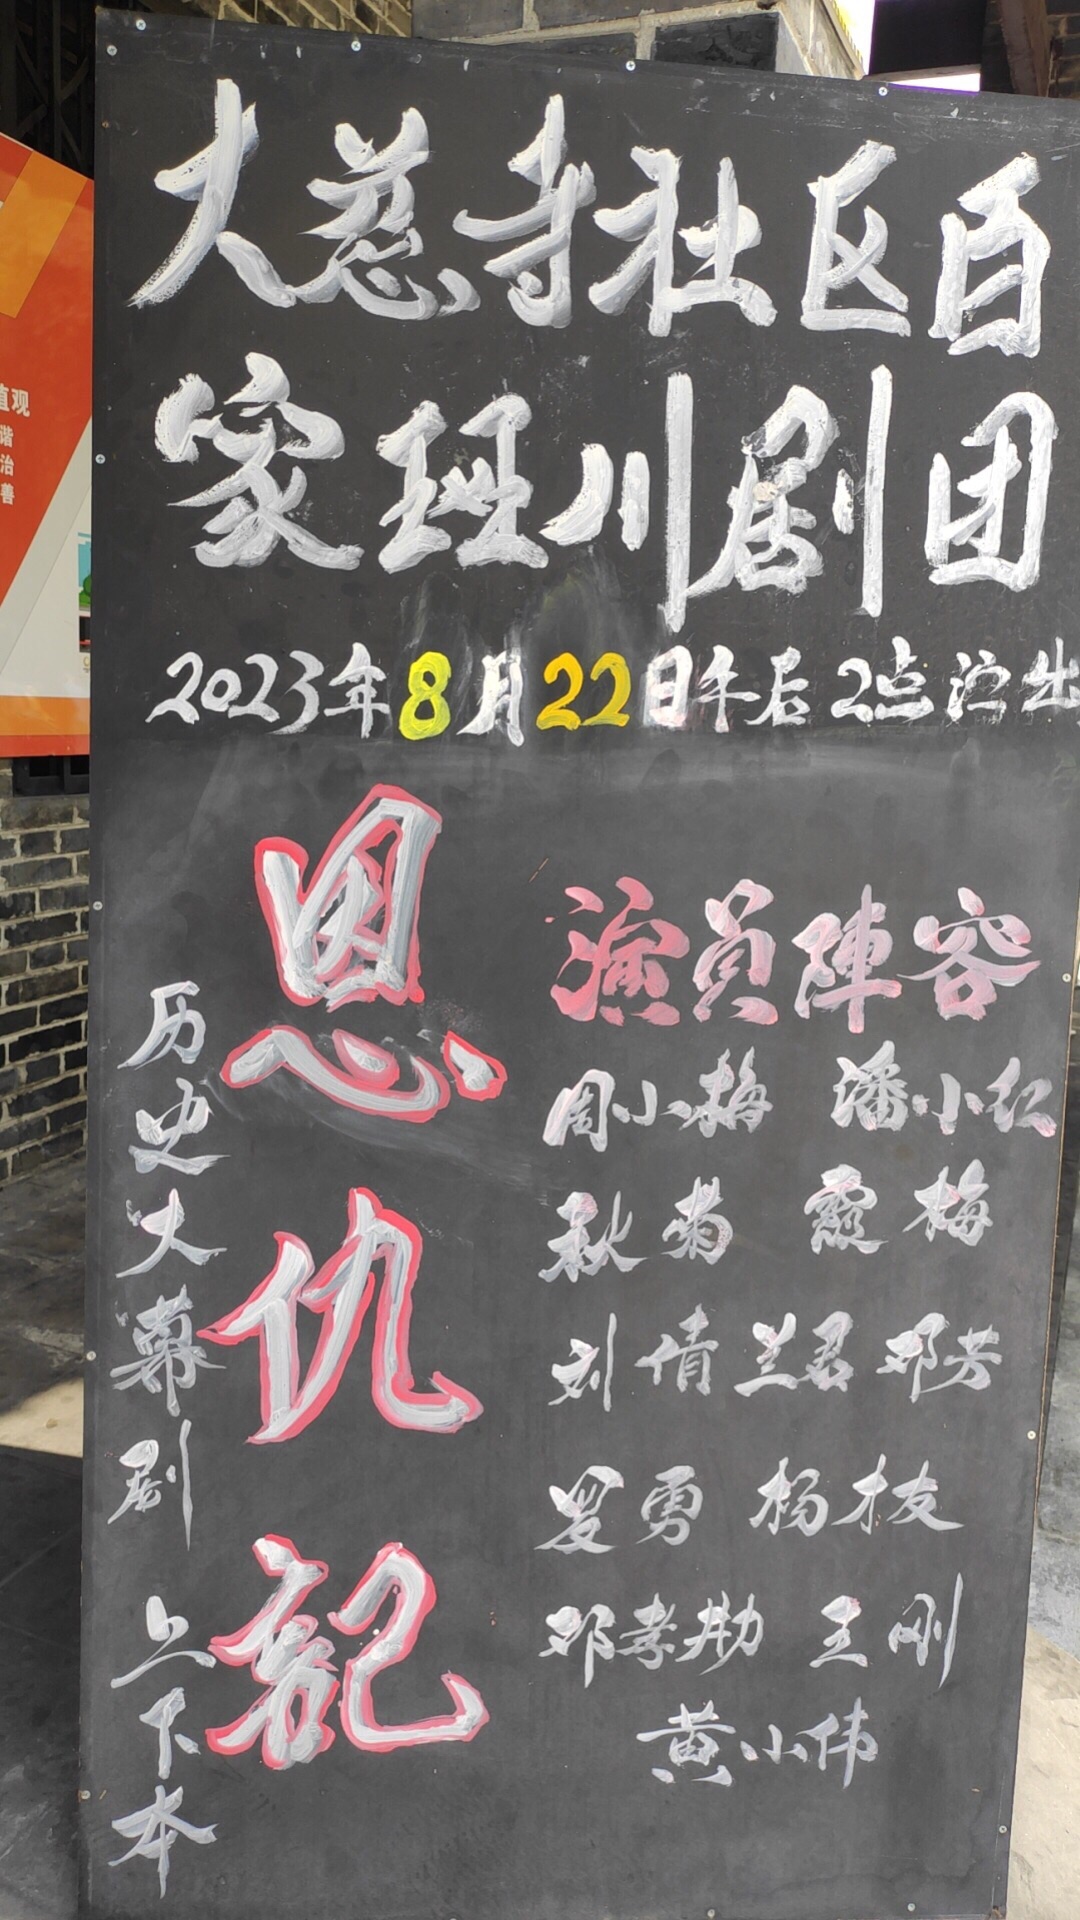 大慈寺社区百
家班川剧团
2023年8月22日午后2点演出
恩仇記
历史大幕剧
上下本
演员陣容
周小梅 潘小红
秋菊 霞梅
刘倩 兰君 邓芳
罗勇 杨枝
邓孝勋 王刚
黄小伟
值观
谐
治
善